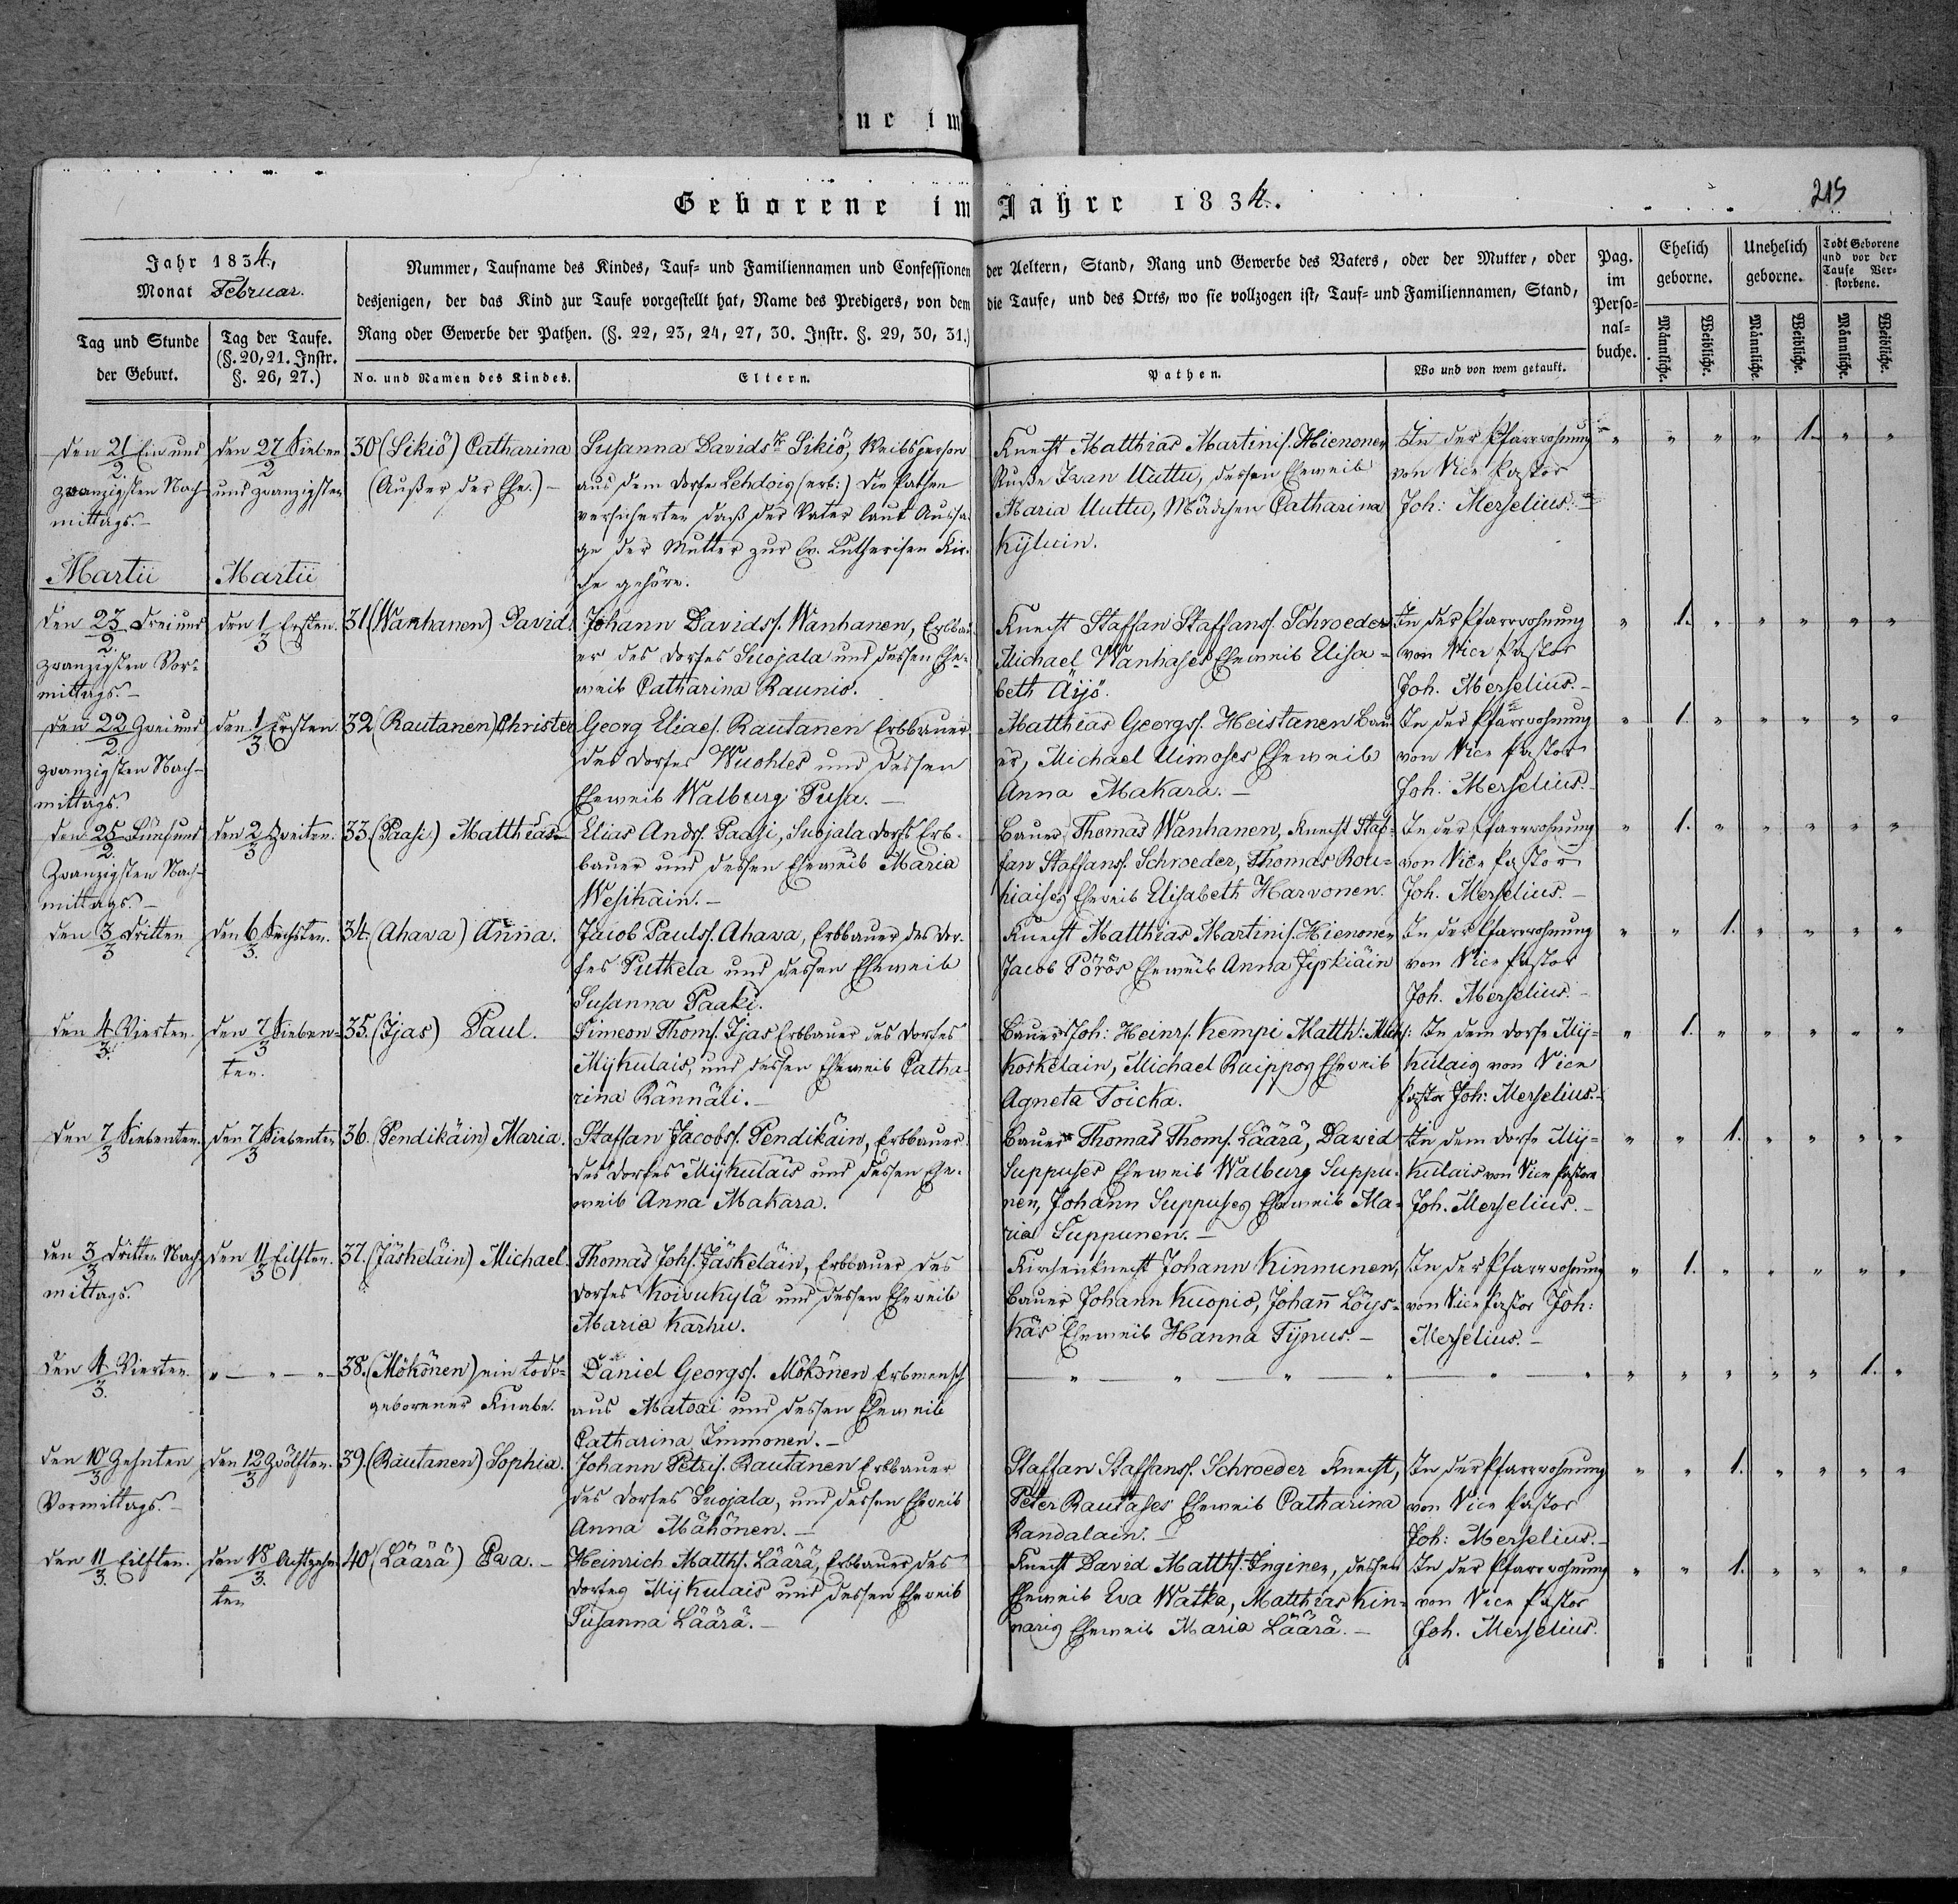 ne im
Geborene im Jahre 1834.
215
Jahr 1834,
Monat Februar.
Tag und Stunde
der Geburt.
Tag der Taufe.
(§. 20, 21. Instr.
§. 26, 27.)
Nummer, Taufname des Kindes, Tauf- und Familiennamen und Confessionen der Aeltern, Stand, Rang und Gewerbe des Vaters, oder der Mutter, oder
desjenigen, der das Kind zur Taufe vorgestellt hat, Name des Predigers, von dem die Taufe, und des Orts, wo sie vollzogen ist, Tauf- und Familiennamen, Stand,
Rang oder Gewerbe der Pathen. (§. 22, 23, 24, 27, 30. Instr. §. 29, 30, 31.)
No. und Namen des Kindes.
Eltern.
Pathen.
Wo und von wem getauft.
Pag.
im
Perso-
nal-
buche.
Ehelich
geborne.
Unehelich
geborne.
Todt Geborene
und vor der
Taufe Ver-
storbene.
Männliche.
Weibliche.
Männliche.
Weibliche.
Männliche.
Weibliche.
den 21/2. Ein und
zwanzigsten Nach-
mittags.-
den 27/2 Sieben
und zwanzigsten
30 (Sikiö) Catharina
(Außer der Ehe.) -
Susanna Davids Sikiö, Weibsperson
aus dem Dorfe Lehdois (erb:) die Pathen
versicherten daß der Vater laut Aussa-
ge der Mutter zur Ev. Lutherischen Kir-
che gehöre.
Knecht Matthias Martinis. Hienonen
Russe Iwan Uuttu, dessen Eheweib
Maria Uuttu, Mädchen Catharina
Kyluin.
In der Pfarrwohnung
von Vice Pastor
Joh: Merselius.-
1.
Martii
Martii
den 23/2. Drei und
zwanzigsten Vor-
mittags.-
den 1/3 Ersten.
31. (Wanhanen) David.
Johann Davidss. Wanhanen, Erbbau-
er des Dorfes Suojala und dessen Ehe-
weib Catharina Raunio.
Knecht Staffan Staffanss. Schroeder
Michael Wanhases Eheweib Elisa-
beth Äijö.
In der Pfarrwohnung
von Vice Pastor
Joh. Merselius.-
1.
den 22/2 Zwei und
zwanzigsten Nach-
mittags.
den 1/3 Ersten.
32 (Rautanen) Christer
Georg Elias. Rautanen Erbbauer
des Dorfes Wuohles und dessen
Eheweib Walburg Pusa.-
Matthias Georgss. Heistanen Bau-
er, Michael Uimoses Eheweib
Anna Makara.-
In der Pfarrwohnung
von Vice Pastor
Joh. Merselius.-
1.
den 25/2. Fünf und
Zwanzigsten Nach-
mittags.-
den 2/3 Zweiten.
33. (Paasi) Matthias
Elias Andss. Paasi, Suojala Dorfs Erb-
bauer und dessen Eheweib Maria
Wesikain.-
Bauer Thomas Wanhanen, Knecht Staf-
fan Staffanss. Schroeder, Thomas Rou-
hiaises Eheweib Elisabeth Harvonen.
In der Pfarrwohnung
von Vice Pastor
Joh. Merselius.-
1.
den 3/3 Dritten
den 6/3. Sechsten.
34. (Ahava) Anna.
Jacob Paulss. Ahava, Erbbauer des Dor-
fes Putkela und dessen Eheweib
Susanna Paaki.
Knecht Matthias Martinis. Hienonen
Jacob Pörös Eheweib Anna Jyskiäin
In der Pfarrwohnung
von Vice Pastor
Joh. Merselius.-
1.
den 4/3. Vierten.
den 7/3 Sieben-
ten.
35. (Ijas) Paul.
Simeon Thoms. Ijas Erbbauer des Dorfes
Mykulais, und dessen Eheweib Catha-
rina Rännäli.-
Bauer Joh: Heinrs. Kempi Matth: Mich:
Koskelain, Michael Ruippos Eheweib
Agneta Toicka.
In dem Dorfe My-
kulais von Vice
Pastor Joh: Merselius.-
1.
den 7/3 Siebenten.
den 7/3 Siebenten
36. (Pendikäin) Maria.
Staffan Jacobss. Pendikäin, Erbbauer
des Dorfes Mykulais und dessen Ehe-
weib Anna Makara.
Bauer Thomas Thoms. Läärä, David
Suppuses Eheweib Walburg Suppu-
nen, Johann Suppuses Eheweib Ma-
ria Suppunen.-
In dem Dorfe My-
kulais von Vice Pastor
Joh. Merselius.-
1.
den 3/3 Dritten Nach-
mittags.
den 11/3 Eilften.
37. (Jäskeläin) Michael.
Thomas Johs. Jäskeläin, Erbbauer des
Dorfes Koiwukylä und dessen Eheweib
Maria Karhu.
Kirchenknecht Johann Kinnunen,
Bauer Johann Kuopio, Johann Löys-
käs Eheweib Hanna Typus.-
In der Pfarrwohnung
von Vice Pastor Joh:
Merselius.-
1.
den 4/3. Vierten
38. (Mökönen) ein todt-
geborener Knabe.
Daniel Georgss. Mökönen Erbmensch
aus Matoxi und dessen Eheweib
Catharina Immonen.-
1.
den 10/3 Zehnten
Vormittags.-
den 12/3 Zwölften.
39. (Rautanen) Sophia.
Johann Petris. Rautanen Erbbauer
des Dorfes Suojala, und dessen Eheweib
Anna Mähönen.-
Staffan Staffanss. Schroeder Knecht,
Peter Rautases Eheweib Catharina
Randalain.-
In der Pfarrwohnung
von Vice Pastor
Joh: Merselius.-
1.
den 11/3. Eilften.
den 18/3. Achtzehn-
ten
40 (Läärä) Eva.-
Heinrich Matths. Läärä, Erbbauer des
Dorfes Mykulais und dessen Eheweib
Susanna Läärä.-
Knecht David Matths. Inginen, dessen
Eheweib Eva Watka, Matthias Kin-
naris Eheweib Maria Läärä.-
In der Pfarrwohnung
von Vice Pastor
Joh. Merselius.
1.